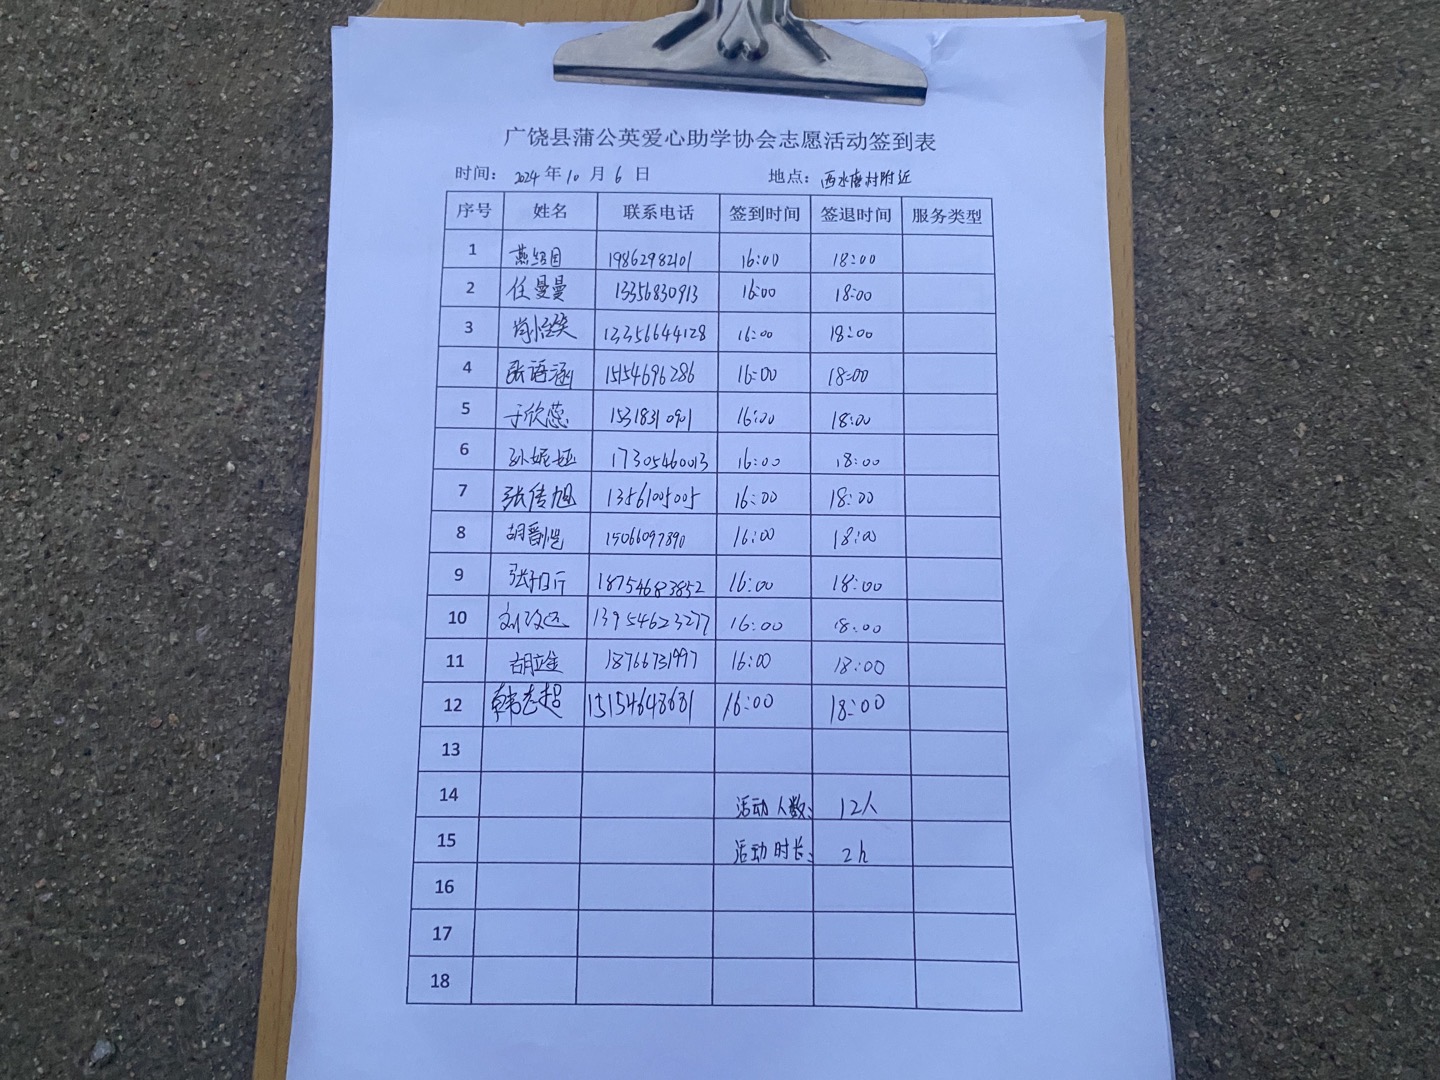 广饶县蒲公英爱心助学协会志愿活动签到表
时间： 2024 年 10 月 6 日 地点： 西水磨村附近
序号 姓名 联系电话 签到时间 签退时间 服务类型
1 19862982101 16:00 18:00
2 任曼曼 13356830913 16:00 18:00
3 13356644128 16:00 18:00
4 张语涵 15154696286 16:00 18:00
5 于欣蕊 15318310901 16:00 18:00
6 孙妮娅 17305460013 16:00 18:00
7 张传旭 13561005005 16:00 18:00
8 胡晋恺 15066097890 16:00 18:00
9 18754683852 16:00 18:00
10 13954623277 16:00 18:00
11 18766731997 16:00 18:00
12 韩志超 15154648681 16:00 18:00
13
14 活动人数： 12人
15 活动时长： 2h
16
17
18